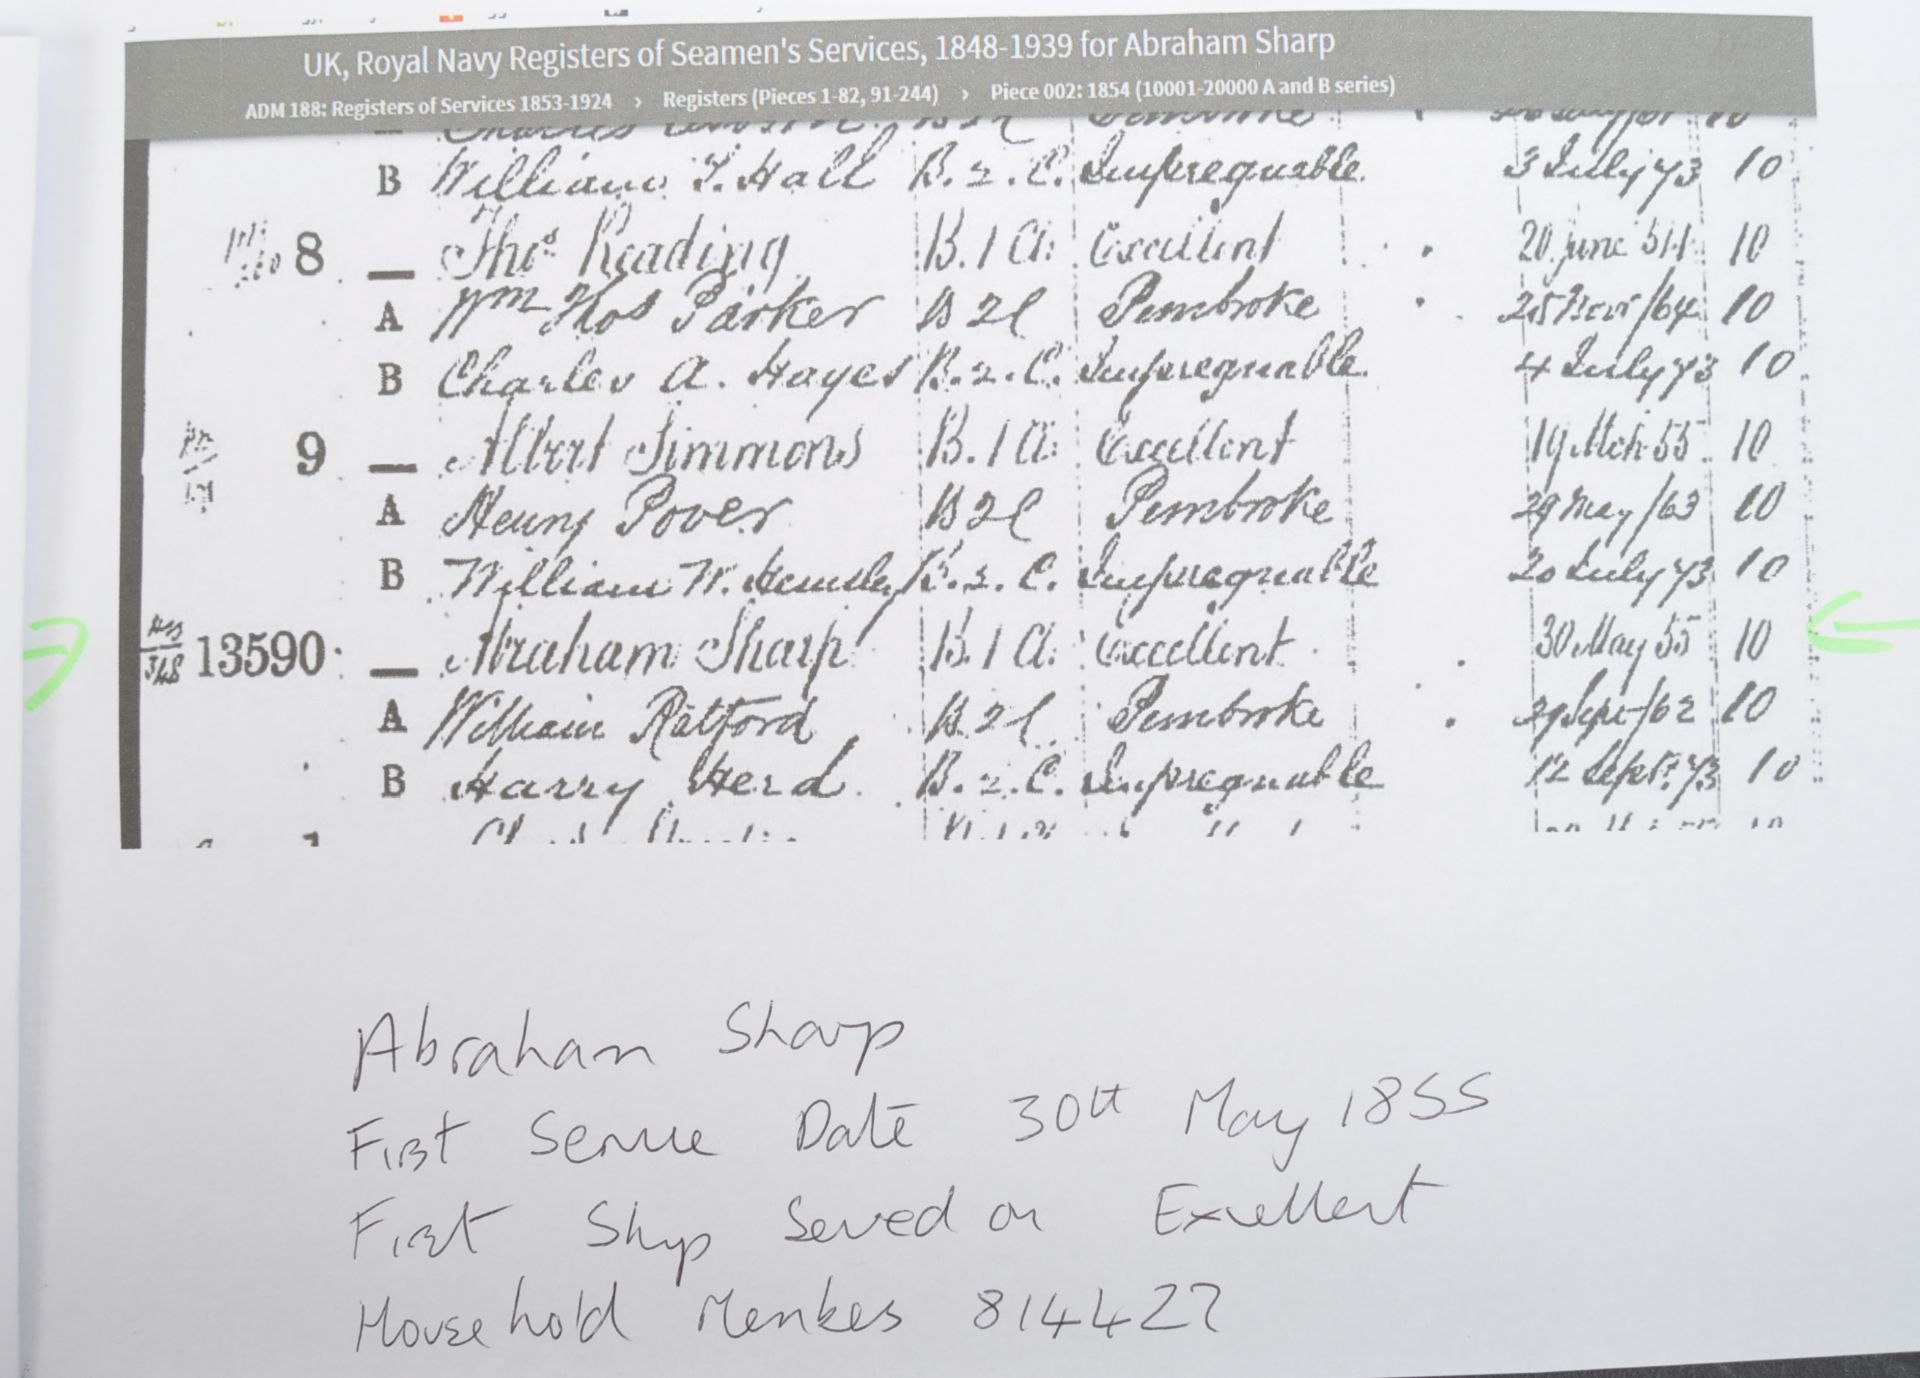 UK, Royal Navy Registers of Seamen's Services, 1848-1939 for Abraham Sharp
ADM 188: Registers of Services 1853-1924 › Registers (Pieces 1-82, 91-244) › Piece 002: 1854 (10001-20000 A and B series)
B William T. Hall B.2.C. Impregnable 3 July 73 10
8 — Thos Reading B.1 Cl: Excellent 20 June 54 10
A Wm Thos Parker B 2C Pembroke 25 Novr/64 10
B Charles A. Hayes B.2.C. Impregnable 4 July 73 10
9 — Albert Simmons B.1 Cl: Excellent 19 Mch 55 10
A Henry Pover B 2C Pembroke 29 May/63 10
B William W. Hemsley B.2.C. Impregnable 20 July 73 10
13590 — Abraham Sharp B.1 Cl. Excellent 30 May 55 10
A William Retford B.2C Pembroke 29 Sept/62 10
B Harry Herd B.2.C. Impregnable 12 Sept. 73 10
Abraham Sharp
First Service Date 30th May 1855
First Ship Served on Excellent
Household Members 814422